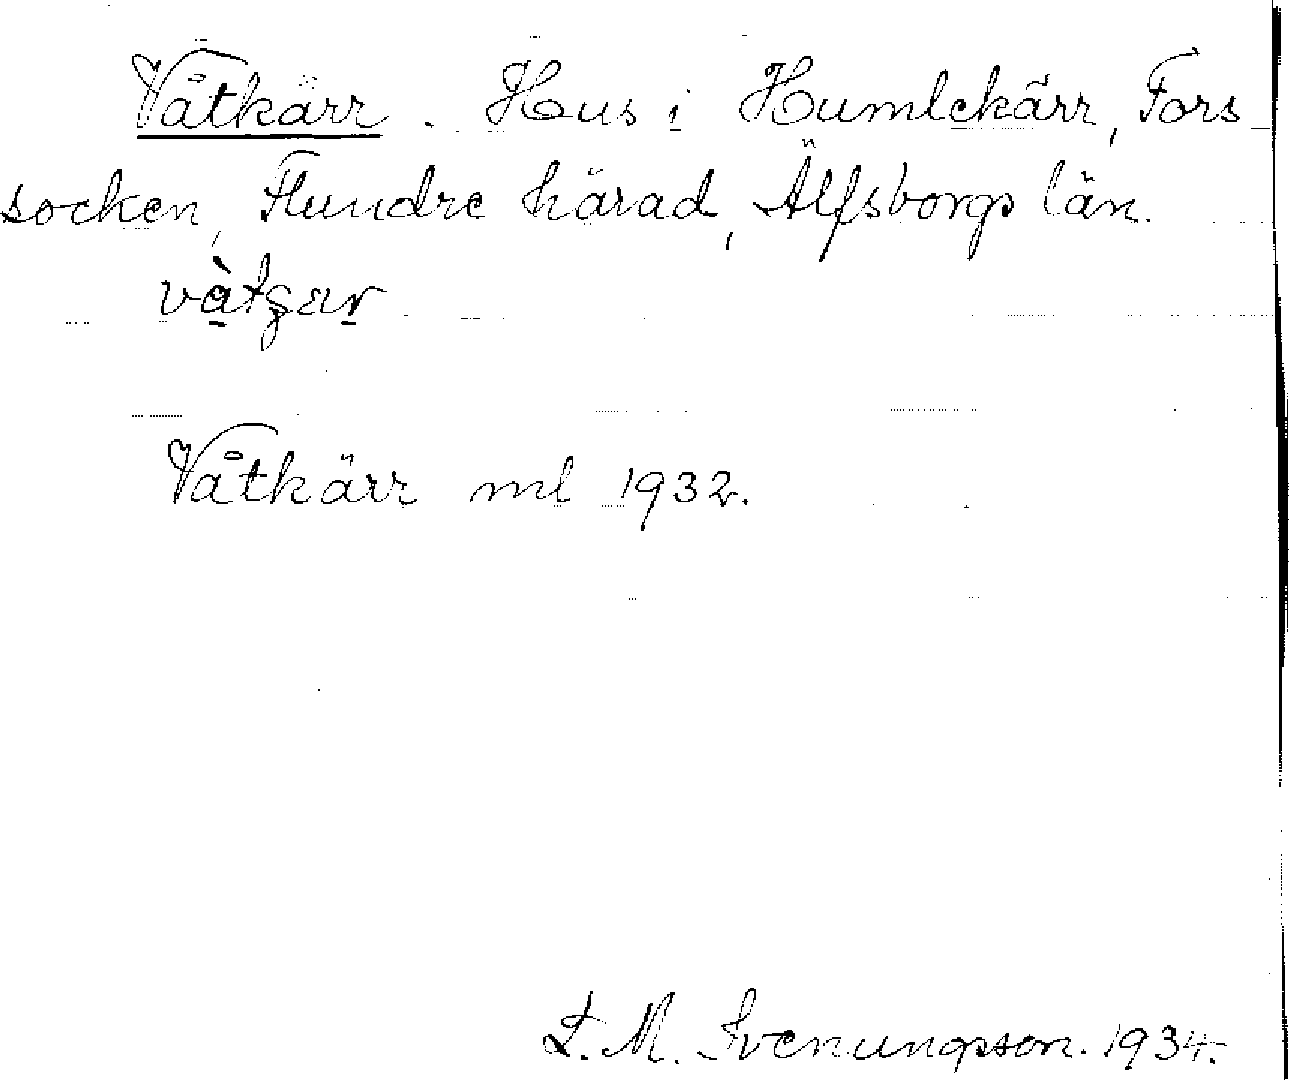 Våtkärr. Hus i Humlekärr, Fors
socken, Flundre härad, Älfsborgs län.
Våtkärr ml 1932.
L. M. Svenungsson. 1934.